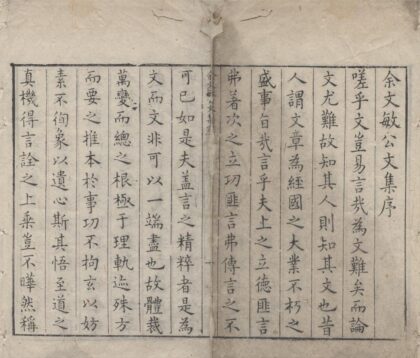 余文敏公文集序
嗟乎文豈易言哉為文難矣而論
文尤難故知其人則知其文也昔
人謂文章為經國之大業不朽之
盛事旨哉言乎夫上之立德匪言
弗著次之立功匪言弗傳言之不
可已如是夫蓋言之精粹者是為
文而文非可以一端盡也故體裁
萬變而總之根極于理軌迹殊方
而要之推本於事功不拘玄以妨
素不徇象以遺心斯其悟至道之
真機得言詮之上乘豈不曄然稱